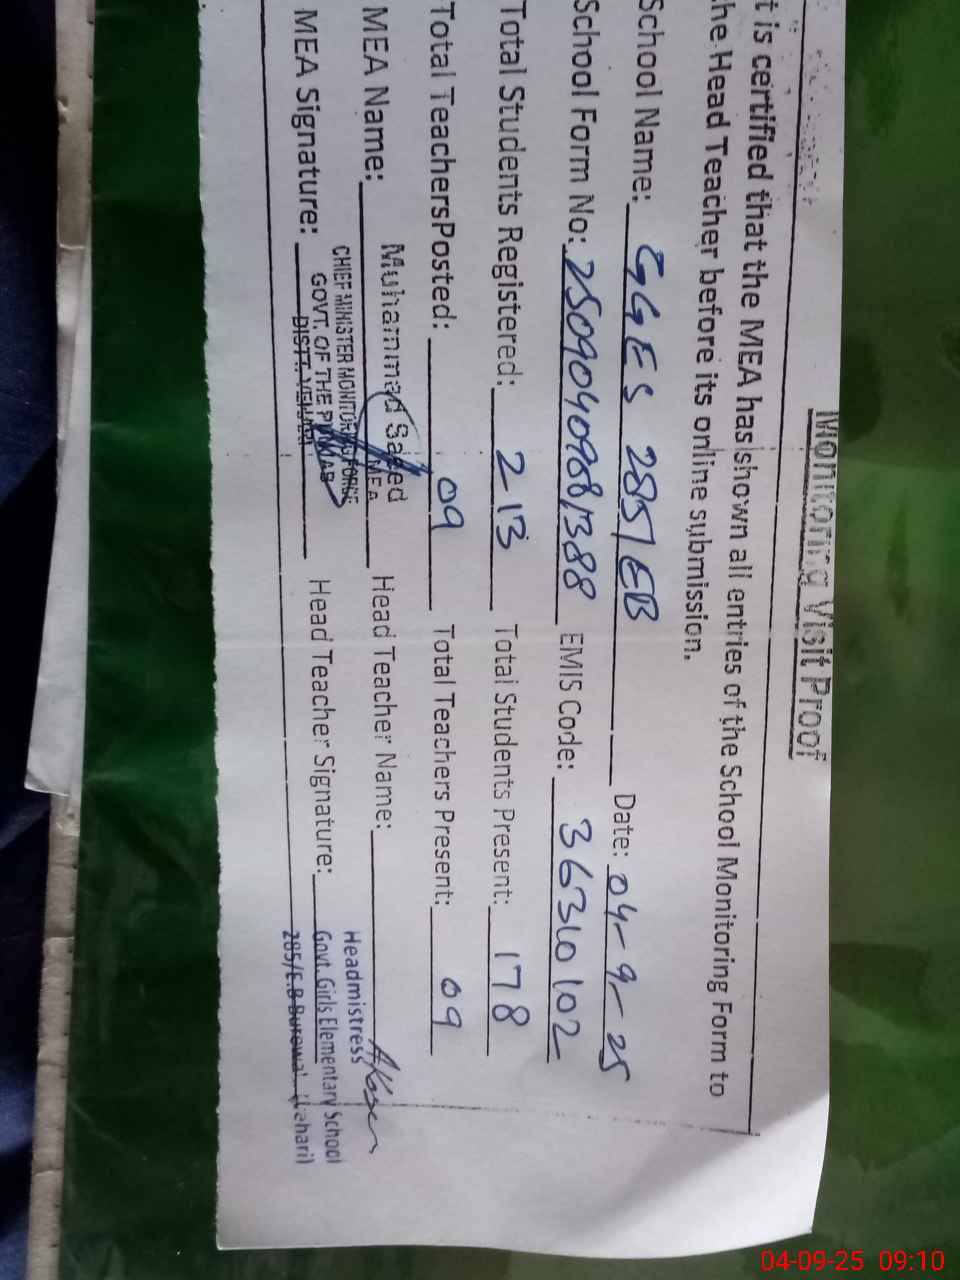 Monitoring Visit Proof
t is certified that the MEA has shown all entries of the School Monitoring Form to
he Head Teacher before its online submission.
School Name: GGES 285/EB Date: 04-9-25
School Form No: EMIS Code: 36310102
Total Students Registered: 213 Total Students Present: 178
Total TeachersPosted: 09 Total Teachers Present: 09
MEA Name: Muhammad Saeed Head Teacher Name:
MEA
CHIEF MINISTER MONITORING FORCE
GOVT. OF THE PUNJAB
DISTT. VEHARI
MEA Signature: Head Teacher Signature:
Headmistress
Govt. Girls Elementary School
285/E.B Burewal (Vehari)
04-09-25 09:10